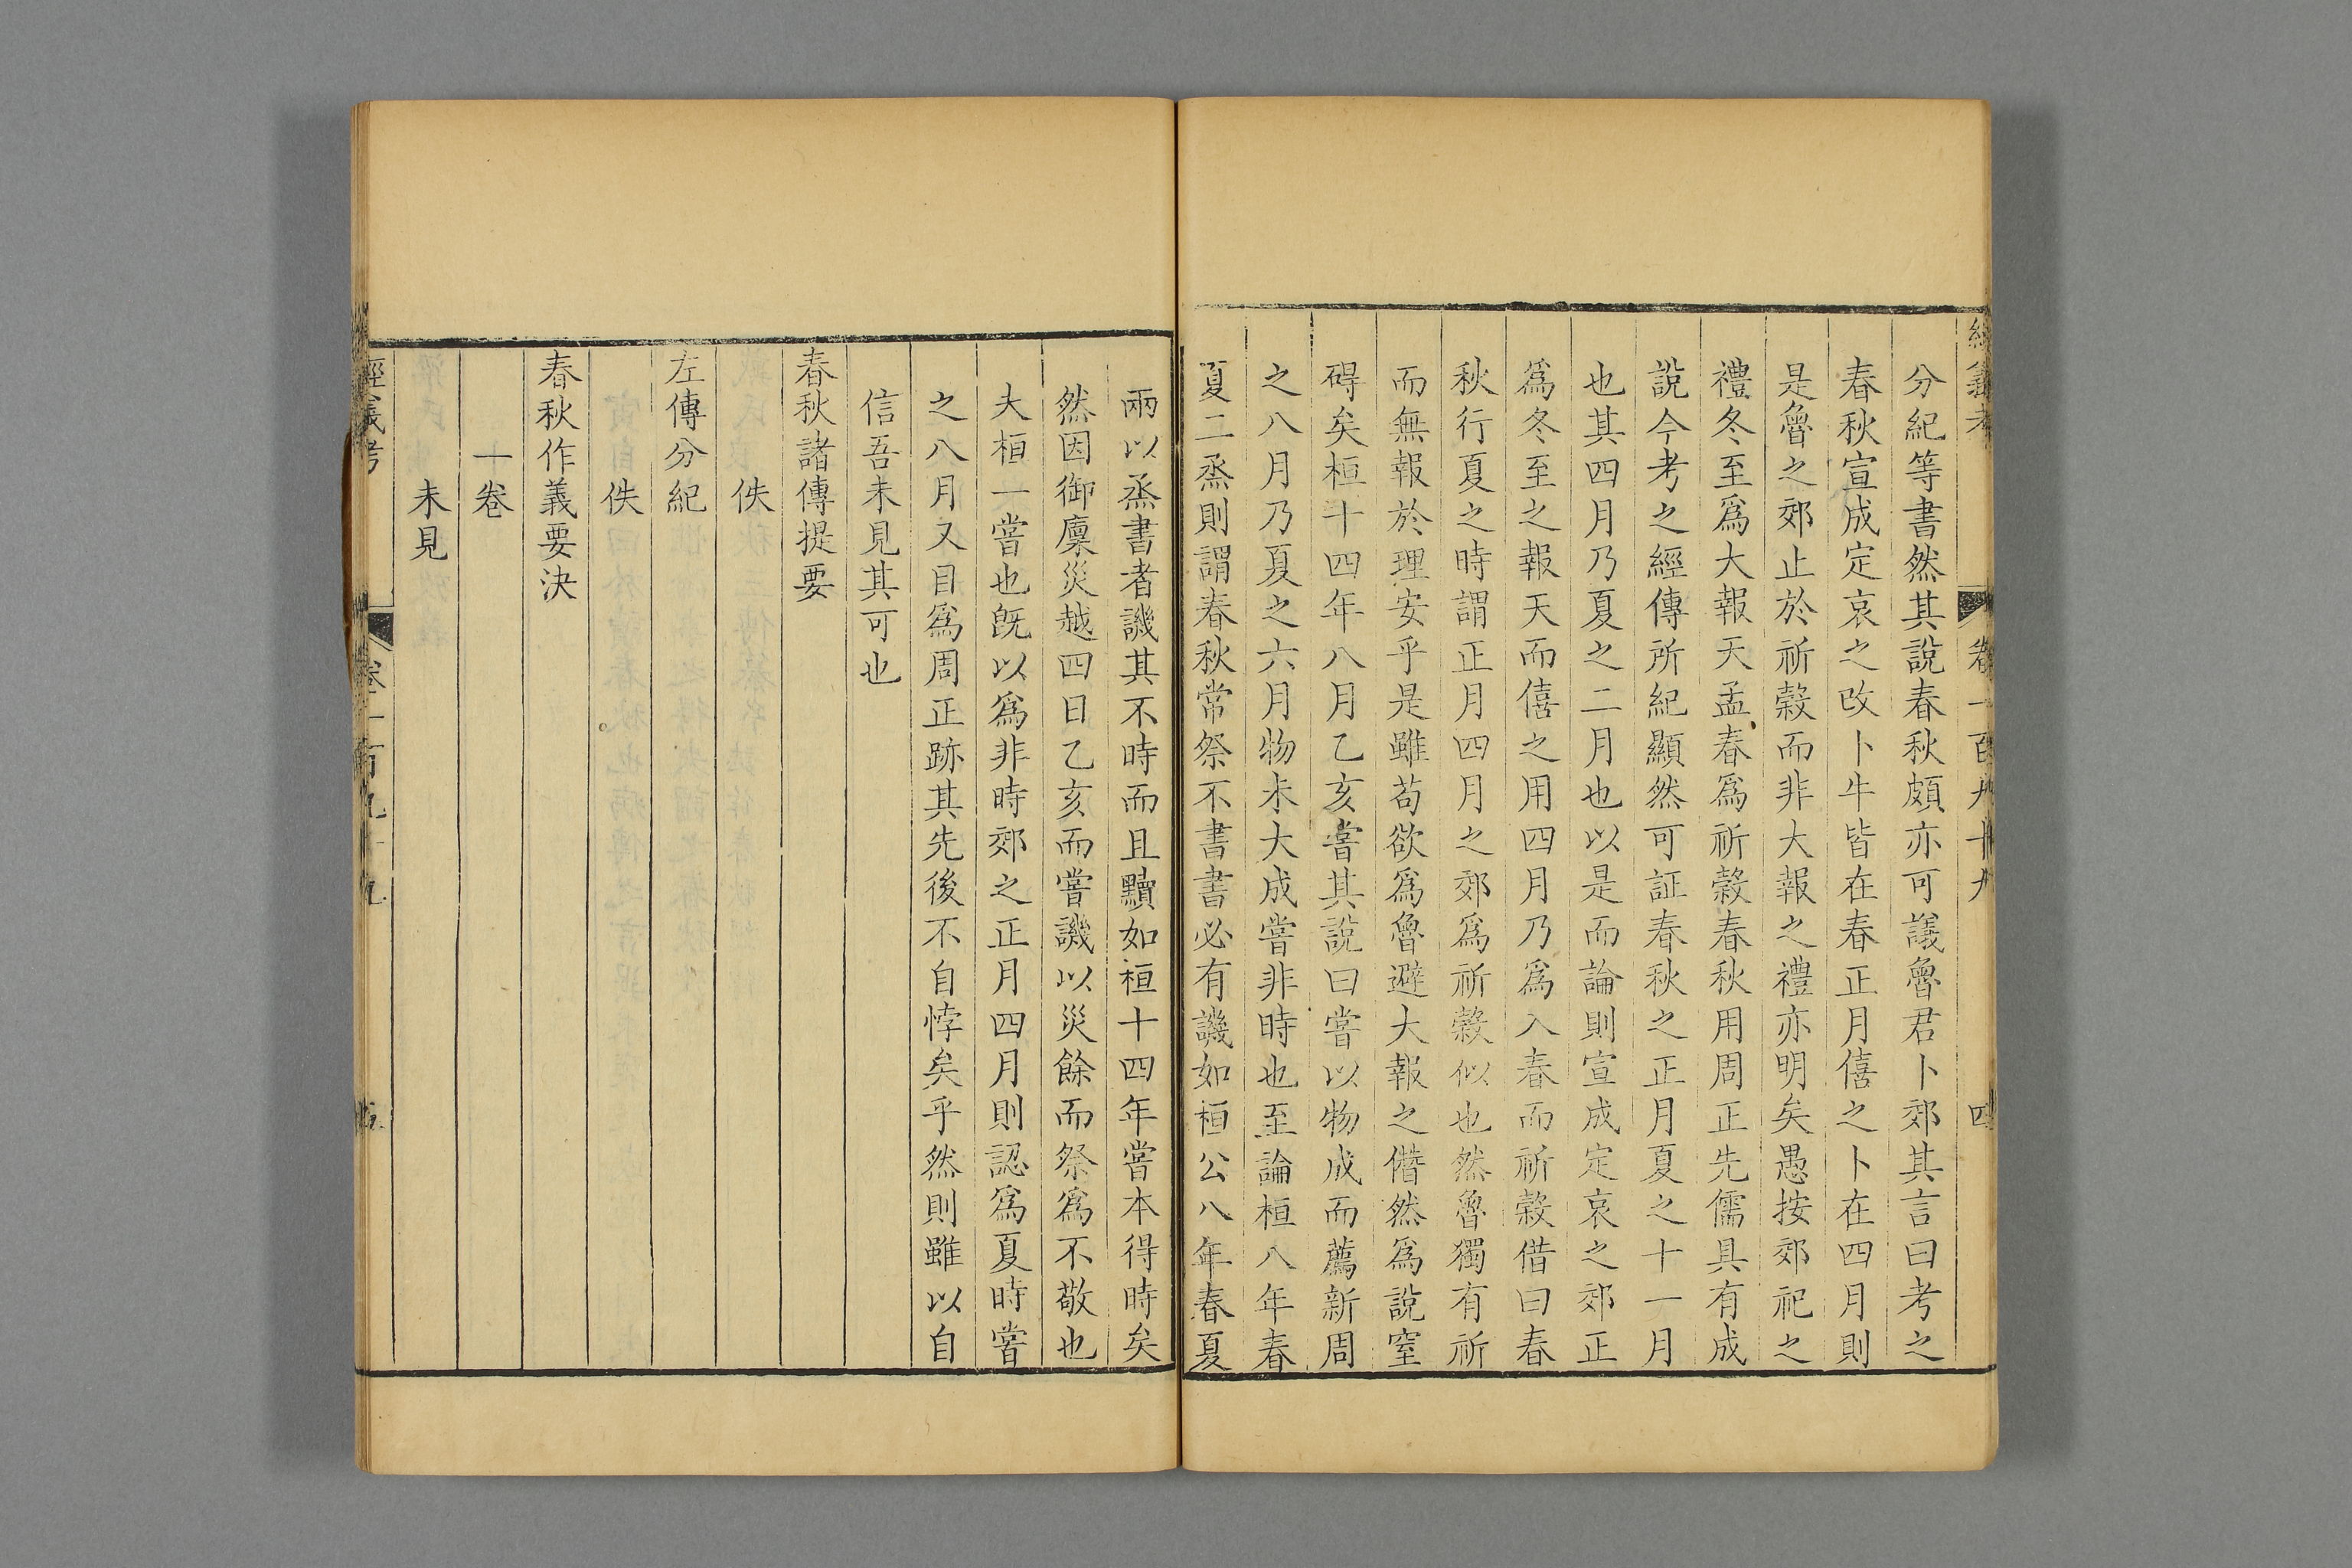 經義考 卷一百九十九 四
分紀等書然其說春秋頗亦可議魯君卜郊其言曰考之
春秋宣成定哀之改卜牛皆在春正月僖之卜在四月則
是魯之郊止於祈穀而非大報之禮亦明矣愚按郊祀之
禮冬至爲大報天孟春爲祈穀春秋用周正先儒具有成
說今考之經傳所紀顯然可証春秋之正月夏之十一月
也其四月乃夏之二月也以是而論則宣成定哀之郊正
爲冬至之報天而僖之用四月乃爲入春而祈穀借曰春
秋行夏之時謂正月四月之郊爲祈穀似也然魯獨有祈
而無報於理安乎是雖苟欲爲魯避大報之僭然爲說窒
碍矣桓十四年八月乙亥嘗其說曰嘗以物成而薦新周
之八月乃夏之六月物未大成嘗非時也至論桓八年春
夏二烝則謂春秋常祭不書書必有譏如桓公八年春夏
兩以烝書者譏其不時而且黷如桓十四年嘗本得時矣
然因御廩災越四日乙亥而嘗譏以災餘而祭爲不敬也
夫桓一嘗也旣以爲非時郊之正月四月則認爲夏時嘗
之八月又目爲周正跡其先後不自悖矣乎然則雖以自
信吾未見其可也
春秋諸傳提要
佚
左傳分紀
佚
春秋作義要決
一卷
未見
經義考 卷一百九十九 五